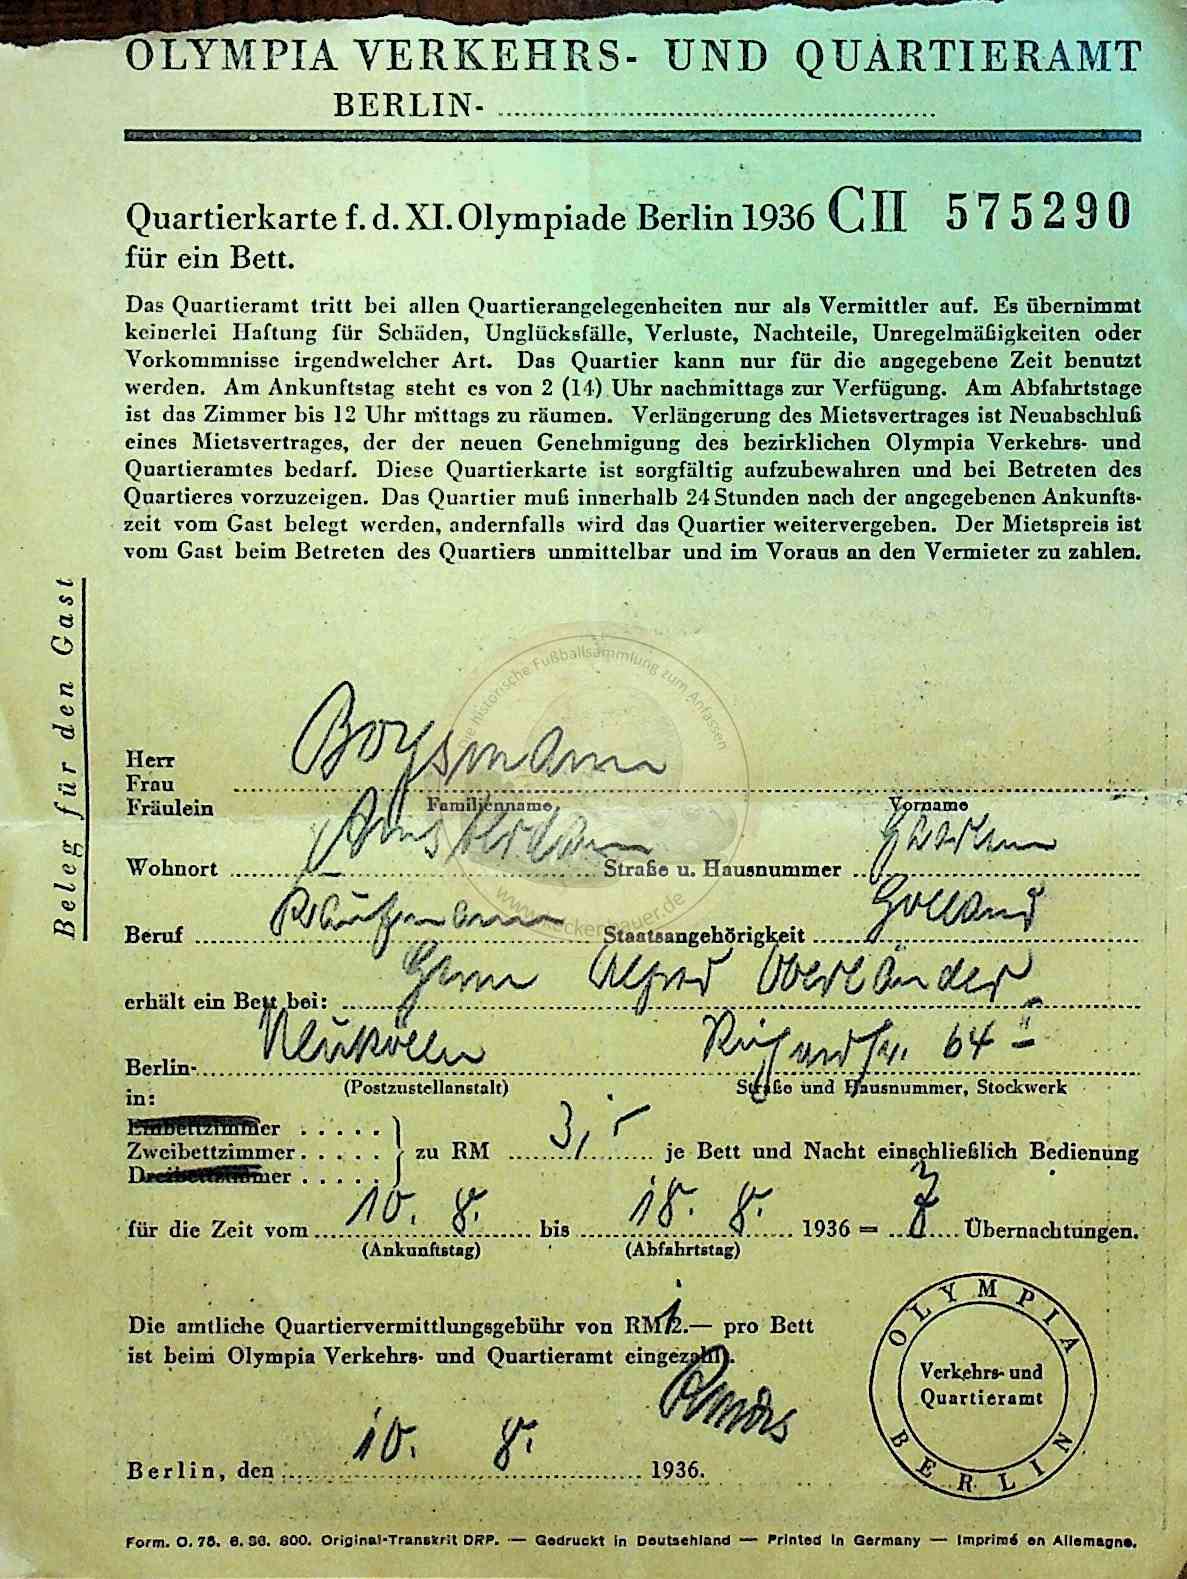 OLYMPIA VERKEHRS- UND QUARTIERAMT
BERLIN-
Quartierkarte f. d. XI. Olympiade Berlin 1936 CII 575290
für ein Bett.
Das Quartieramt tritt bei allen Quartierangelegenheiten nur als Vermittler auf. Es übernimmt
keinerlei Haftung für Schäden, Unglücksfälle, Verluste, Nachteile, Unregelmäßigkeiten oder
Vorkommnisse irgendwelcher Art. Das Quartier kann nur für die angegebene Zeit benutzt
werden. Am Ankunftstag steht es von 2 (14) Uhr nachmittags zur Verfügung. Am Abfahrtstage
ist das Zimmer bis 12 Uhr mittags zu räumen. Verlängerung des Mietsvertrages ist Neuabschluß
eines Mietsvertrages, der der neuen Genehmigung des bezirklichen Olympia Verkehrs- und
Quartieramtes bedarf. Diese Quartierkarte ist sorgfältig aufzubewahren und bei Betreten des
Quartieres vorzuzeigen. Das Quartier muß innerhalb 24 Stunden nach der angegebenen Ankunfts-
zeit vom Gast belegt werden, andernfalls wird das Quartier weitervergeben. Der Mietspreis ist
vom Gast beim Betreten des Quartiers unmittelbar und im Voraus an den Vermieter zu zahlen.
Beleg für den Gast
Herr
Frau
Fräulein
Boysmann
Familienname, Vorname
Wohnort Amsterdam Straße u. Hausnummer
Beruf Kaufmann Staatsangehörigkeit Holland
erhält ein Bett bei: Herrn Alfred Oberländer
Berlin- Neukölln Richardstr. 64 II
(Postzustellanstalt) Straße und Hausnummer, Stockwerk
in:
Einbettzimmer
Zweibettzimmer zu RM 3,- je Bett und Nacht einschließlich Bedienung
Dreibettzimmer
für die Zeit vom 10. 8. bis 18. 8. 1936 = Übernachtungen.
(Ankunftstag) (Abfahrtstag)
Die amtliche Quartiervermittlungsgebühr von RM 2.— pro Bett
ist beim Olympia Verkehrs- und Quartieramt eingezahlt.
Berlin, den 10. 8. 1936.
OLYMPIA
Verkehrs- und
Quartieramt
BERLIN
Form. O. 78. 6. 36. 800. Original-Transkrit DRP. — Gedruckt in Deutschland — Printed in Germany — Imprimé en Allemagne.